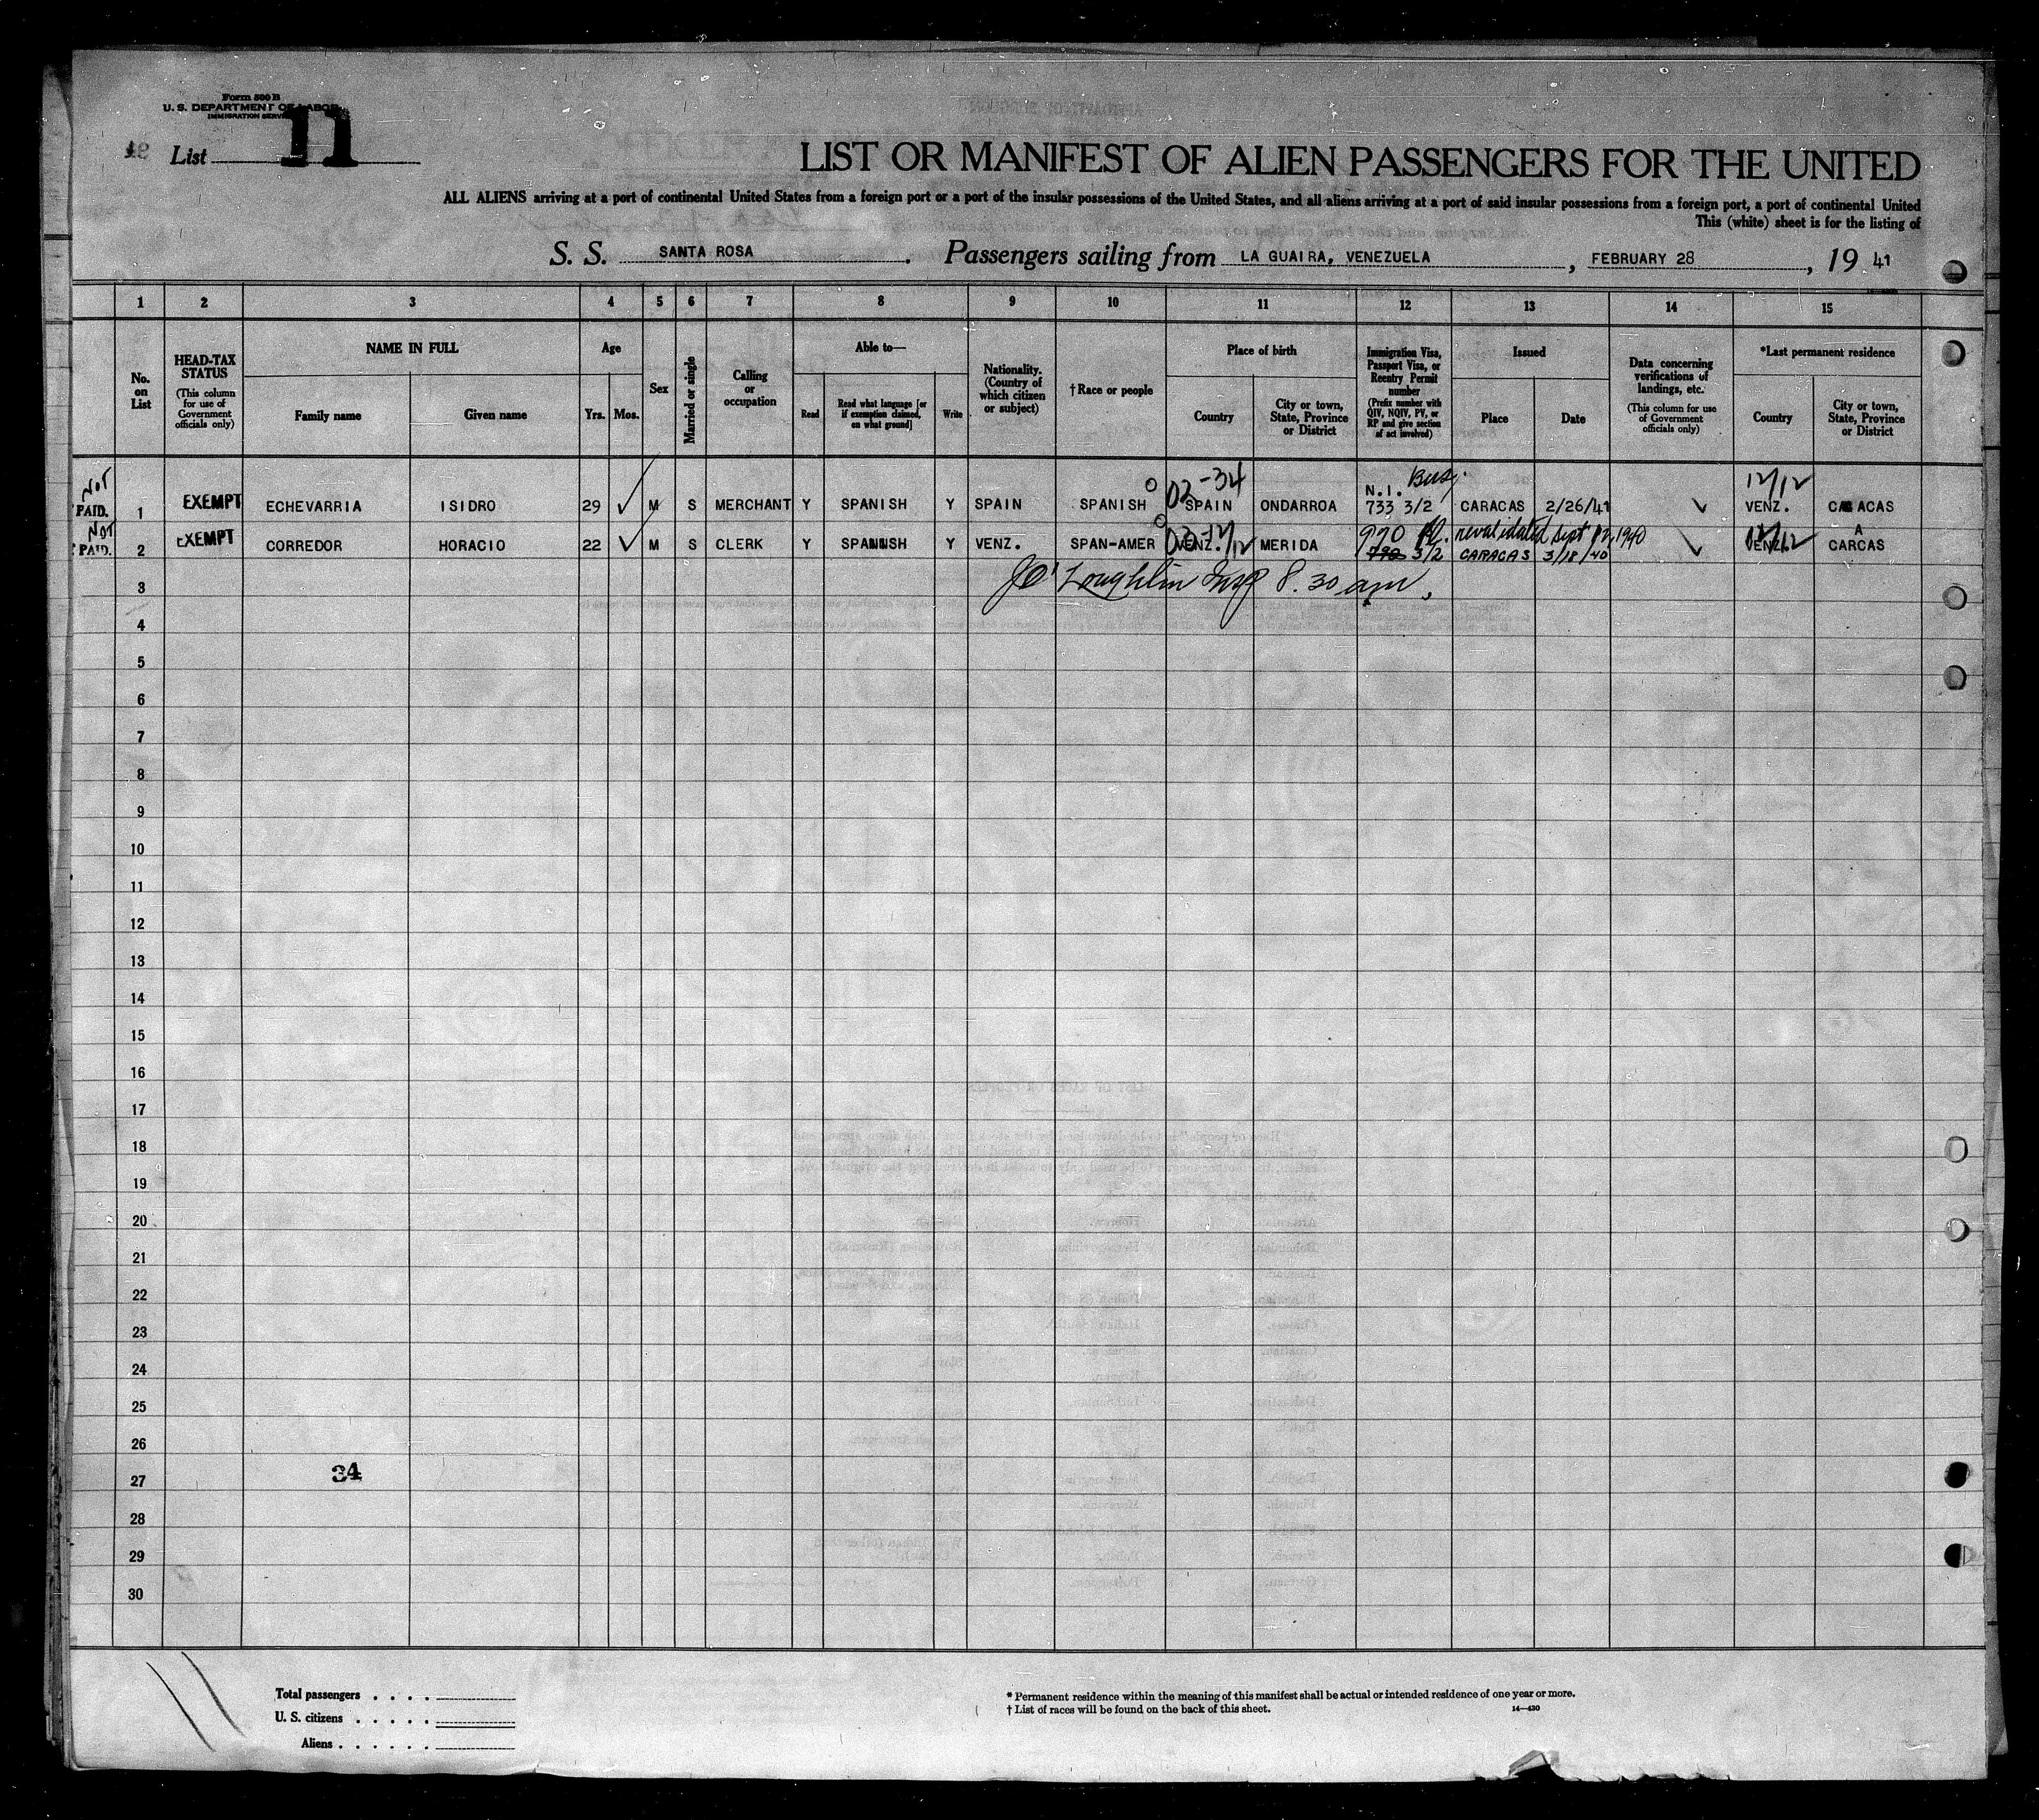 Form 500 B
U. S. DEPARTMENT OF LABOR
IMMIGRATION SERVICE
List 11
LIST OR MANIFEST OF ALIEN PASSENGERS FOR THE UNITED
ALL ALIENS arriving at a port of continental United States from a foreign port or a port of the insular possessions of the United States, and all aliens arriving at a port of said insular possessions from a foreign port, a port of continental United
This (white) sheet is for the listing of
S. S. SANTA ROSA. Passengers sailing from LA GUAIRA, VENEZUELA, FEBRUARY 28, 19 41
1 2 3 4 5 6 7 8 9 10 11 12 13 14 15
No. on List
HEAD-TAX STATUS
(This column for use of Government officials only)
NAME IN FULL
Family name
Given name
Age
Yrs.
Mos.
Sex
Married or single
Calling or occupation
Able to—
Read
Read what language [or if exemption claimed, on what ground]
Write
Nationality. (Country of which citizen or subject)
†Race or people
Place of birth
Country
City or town, State, Province or District
Immigration Visa, Passport Visa, or Reentry Permit number
(Prefix number with QIV, NQIV, PV, or RP and give section of act involved)
Issued
Place
Date
Data concerning verifications of landings, etc.
(This column for use of Government officials only)
*Last permanent residence
Country
City or town, State, Province or District
NOT Busy. 12/12
02-34 N.I.
PAID. 1 EXEMPT ECHEVARRIA ISIDRO 29 M S MERCHANT Y SPANISH Y SPAIN SPANISH SPAIN ONDARROA 733 3/2 CARACAS 2/26/41 VENZ. CARACAS
NOT 970 revalidated Sept 12, 1940 A
PAID. 2 EXEMPT CORREDOR HORACIO 22 M S CLERK Y SPANISH Y VENZ. SPAN-AMER VENZ. MERIDA 3/2 CARACAS 3/18/40 VENZ. 12/12 CARCAS
3 JO'Loughlin Insp 8.30 am.
4
5
6
7
8
9
10
11
12
13
14
15
16
17
18
19
20
21
22
23
24
25
26
27 34
28
29
30
Total passengers . . . .
U. S. citizens . . . . .
Aliens . . . . . .
* Permanent residence within the meaning of this manifest shall be actual or intended residence of one year or more.
† List of races will be found on the back of this sheet.
14—430